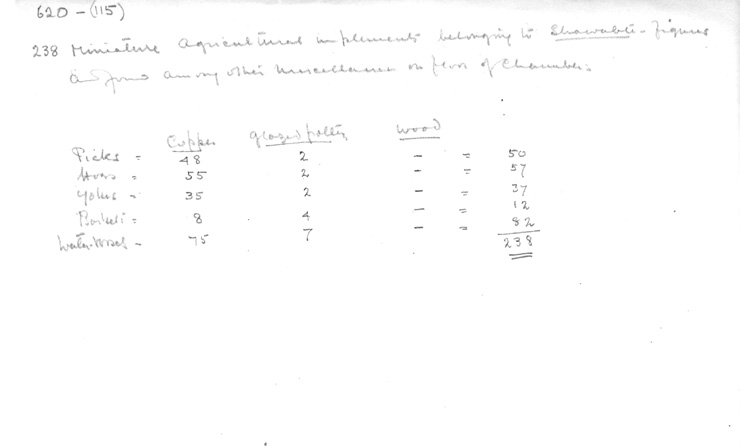 620 - (115)
238 Miniature agricultural implements belonging to Shawabti-Figures
found among other miscellanea on floor of Chamber.
Copper glazed pottery wood
Picks = 48 2 - = 50
Hoes = 55 2 - = 57
Yokes - 35 2 - = 37
Baskets = 8 4 - = 12
Water-vessels - 75 7 - = 82
238